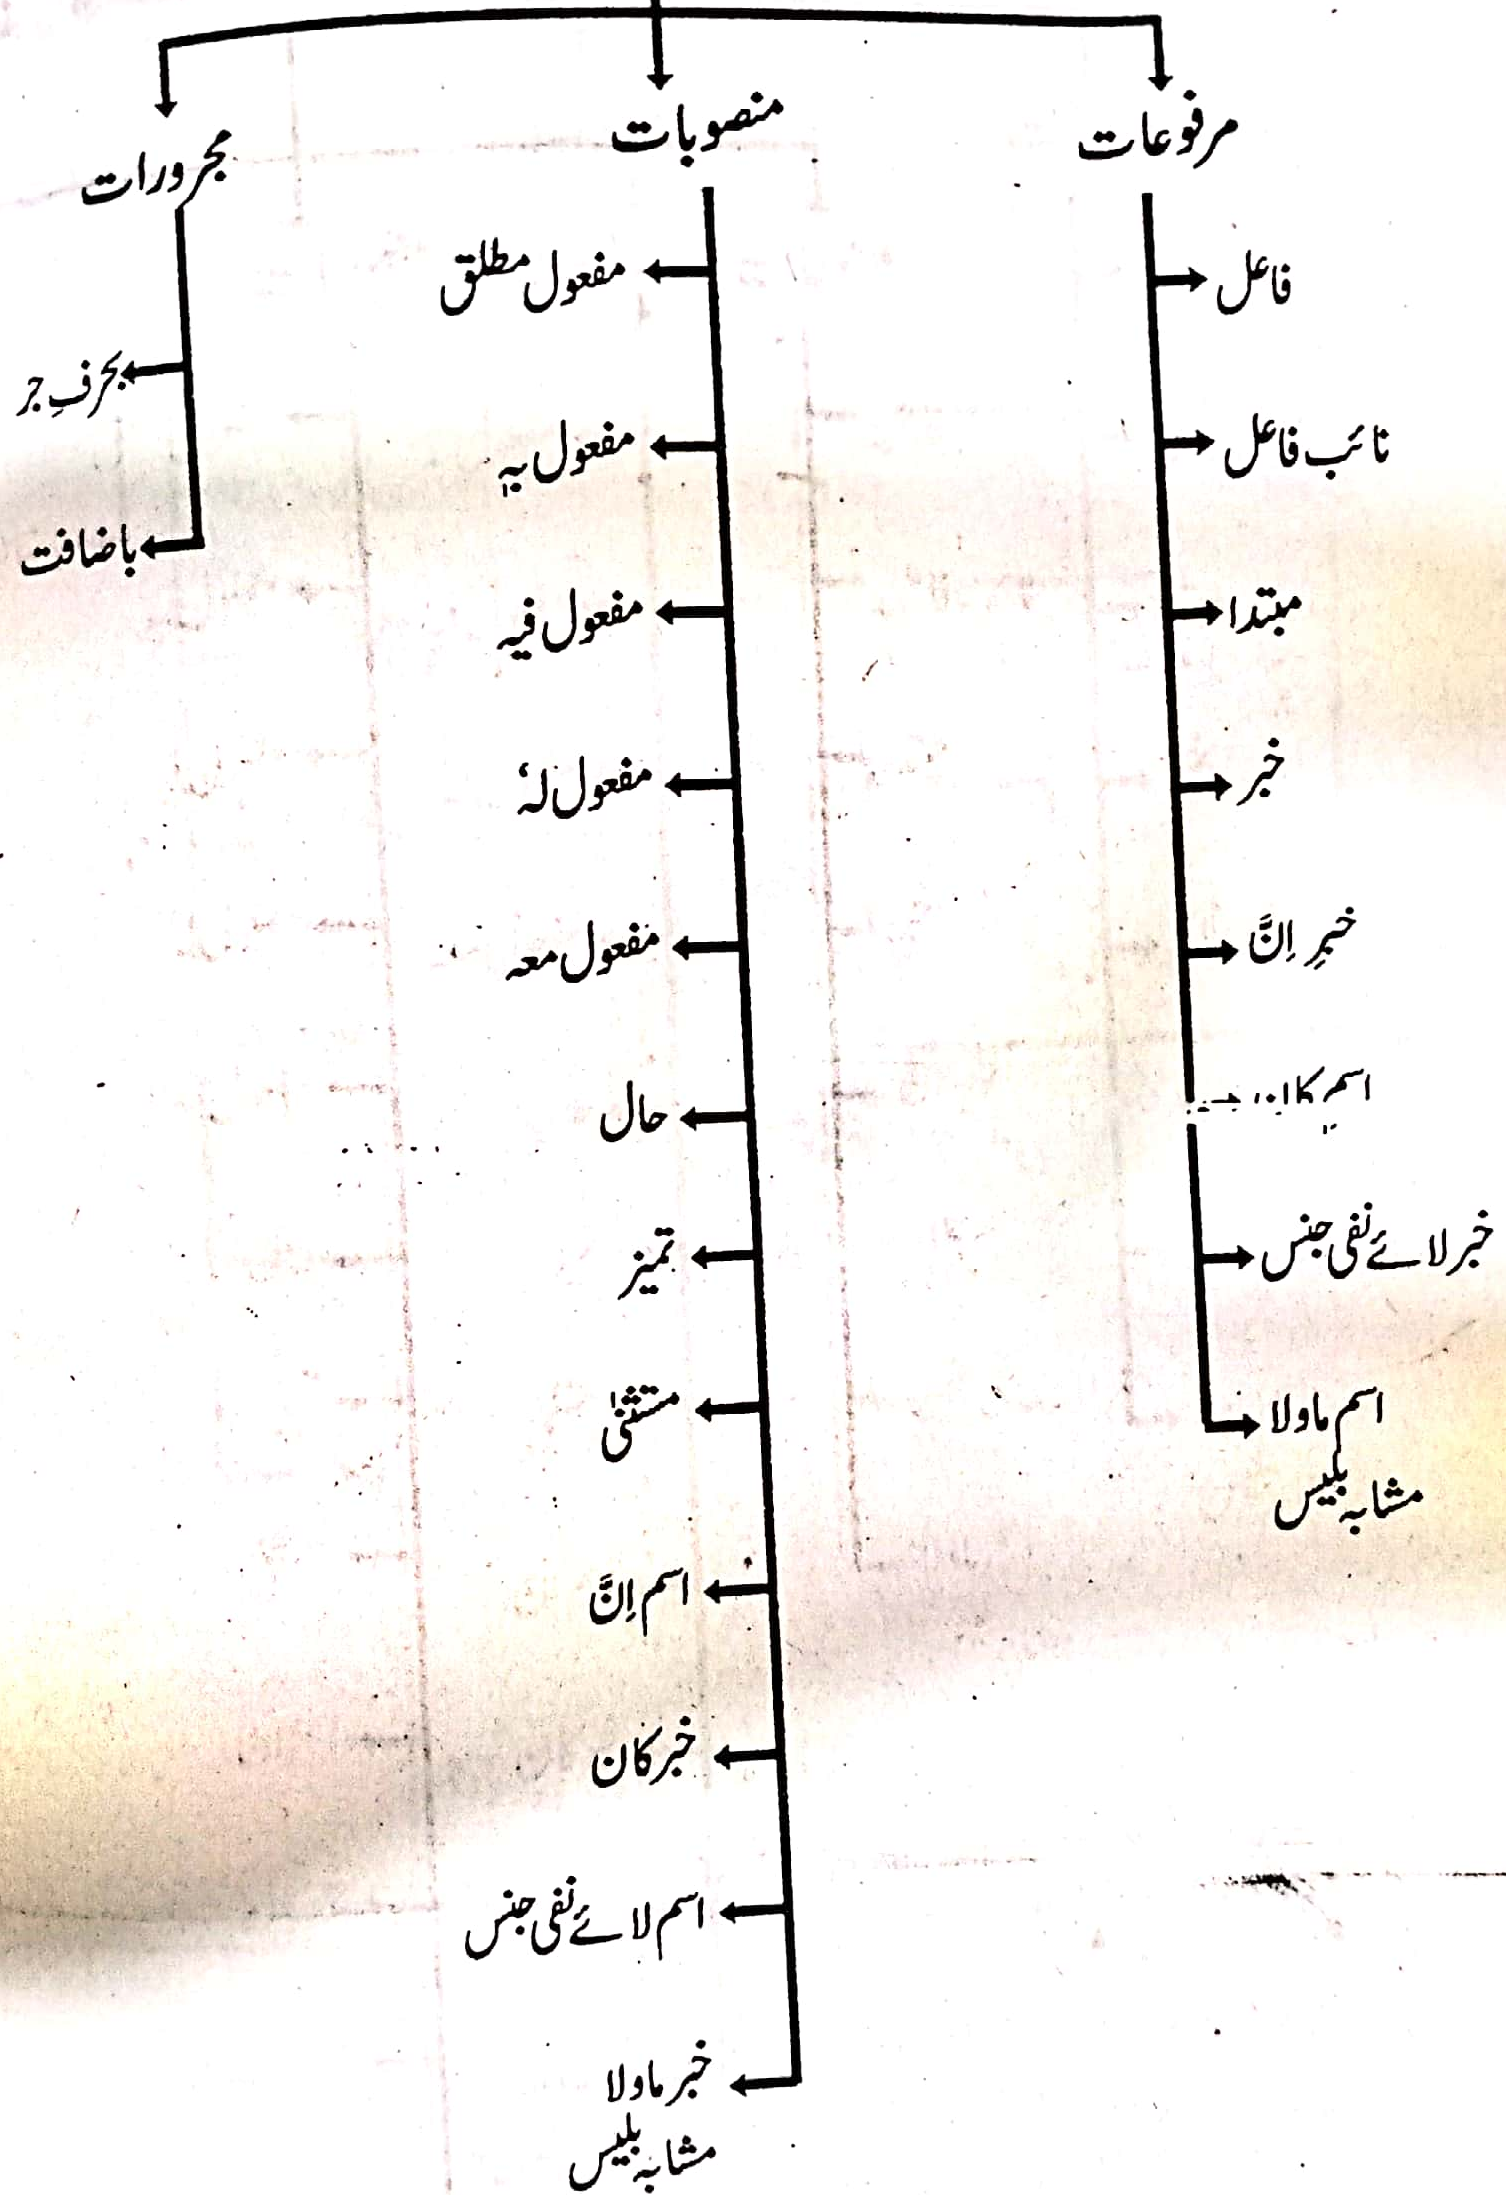 مرفوعات
فاعل
نائب فاعل
مبتدا
خبر
خبرِ اِنَّ
اسمِ
خبر لائے نفی جنس
اسم ماولا
مشابہ بلیس
منصوبات
مفعول مطلق
مفعول بہٖ
مفعول فیہ
مفعول لہٗ
مفعول معہ
حال
تمیز
مستثنٰی
اسم اِنَّ
خبر کان
اسم لائے نفی جنس
خبر ماولا
مشابہ بلیس
مجرورات
بحرفِ جر
باضافت